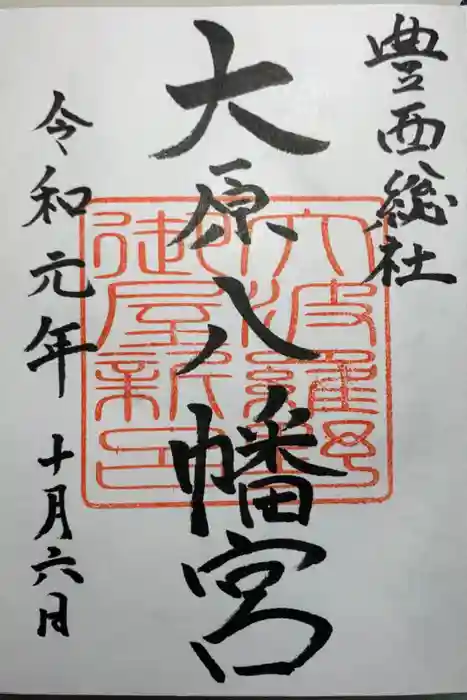 豊西総社
大原八幡宮
令和元年 十月六日